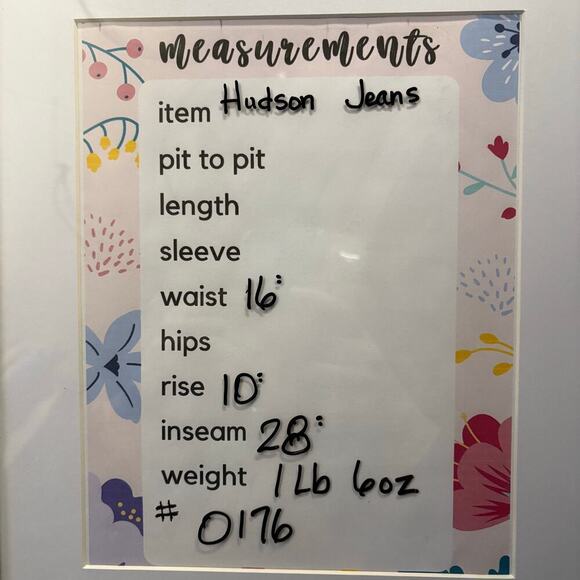 measurements
item Hudson Jeans
pit to pit
length
sleeve
waist 16"
hips
rise 10"
inseam 28"
weight 1 Lb 6oz
# 0176